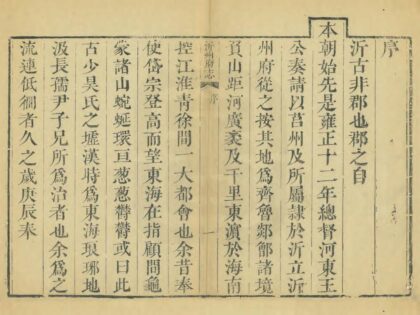 序
沂古非郡也郡之自
本朝始先是雍正十二年總督河東王
公奏請以莒州及所屬隸於沂立沂
州府從之按其地爲齊魯郯諸境
負山距河廣袤及千里東濵於海南
沂州府志 序 一
控江淮青徐間一大都會也余昔奉
使岱宗登高而望東海在指顧間龜
蒙諸山蜿蜒環亘葱葱鬱鬱或曰此
古少昊氏之墟漢時爲東海琅琊地
汲長孺尹子兄所爲治者也余爲之
流連低徊者久之歲庚辰奉